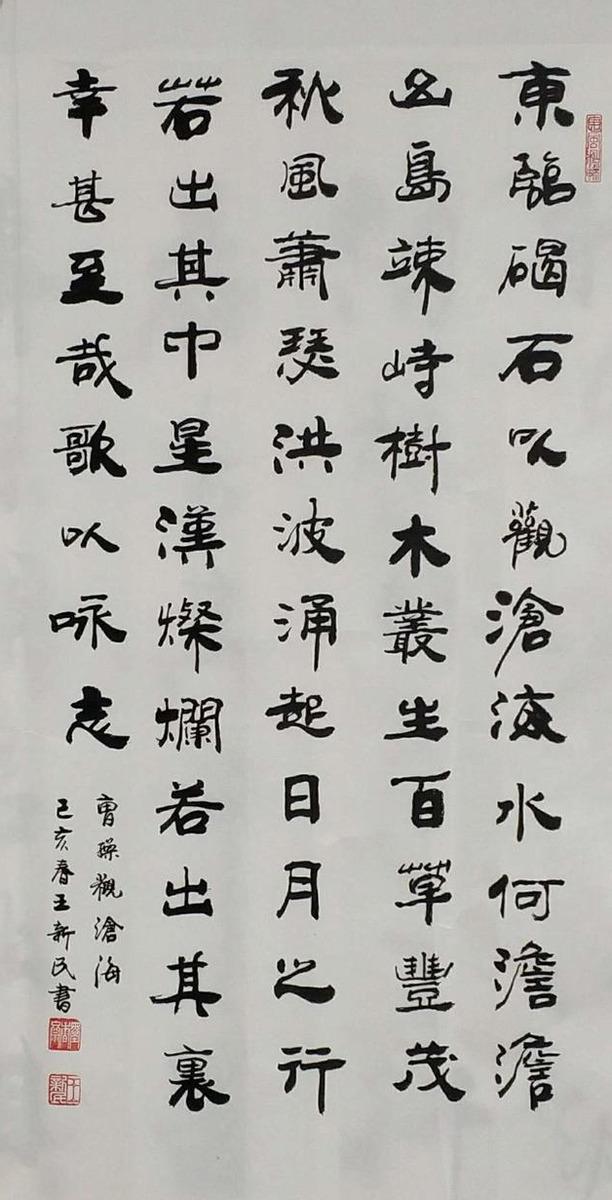 東臨碣石以觀滄海水何澹澹
山島竦峙樹木叢生百草豐茂
秋風蕭瑟洪波涌起日月之行
若出其中星漢燦爛若出其裏
幸甚至哉歌以咏志
曹操觀滄海
己亥春王新民書